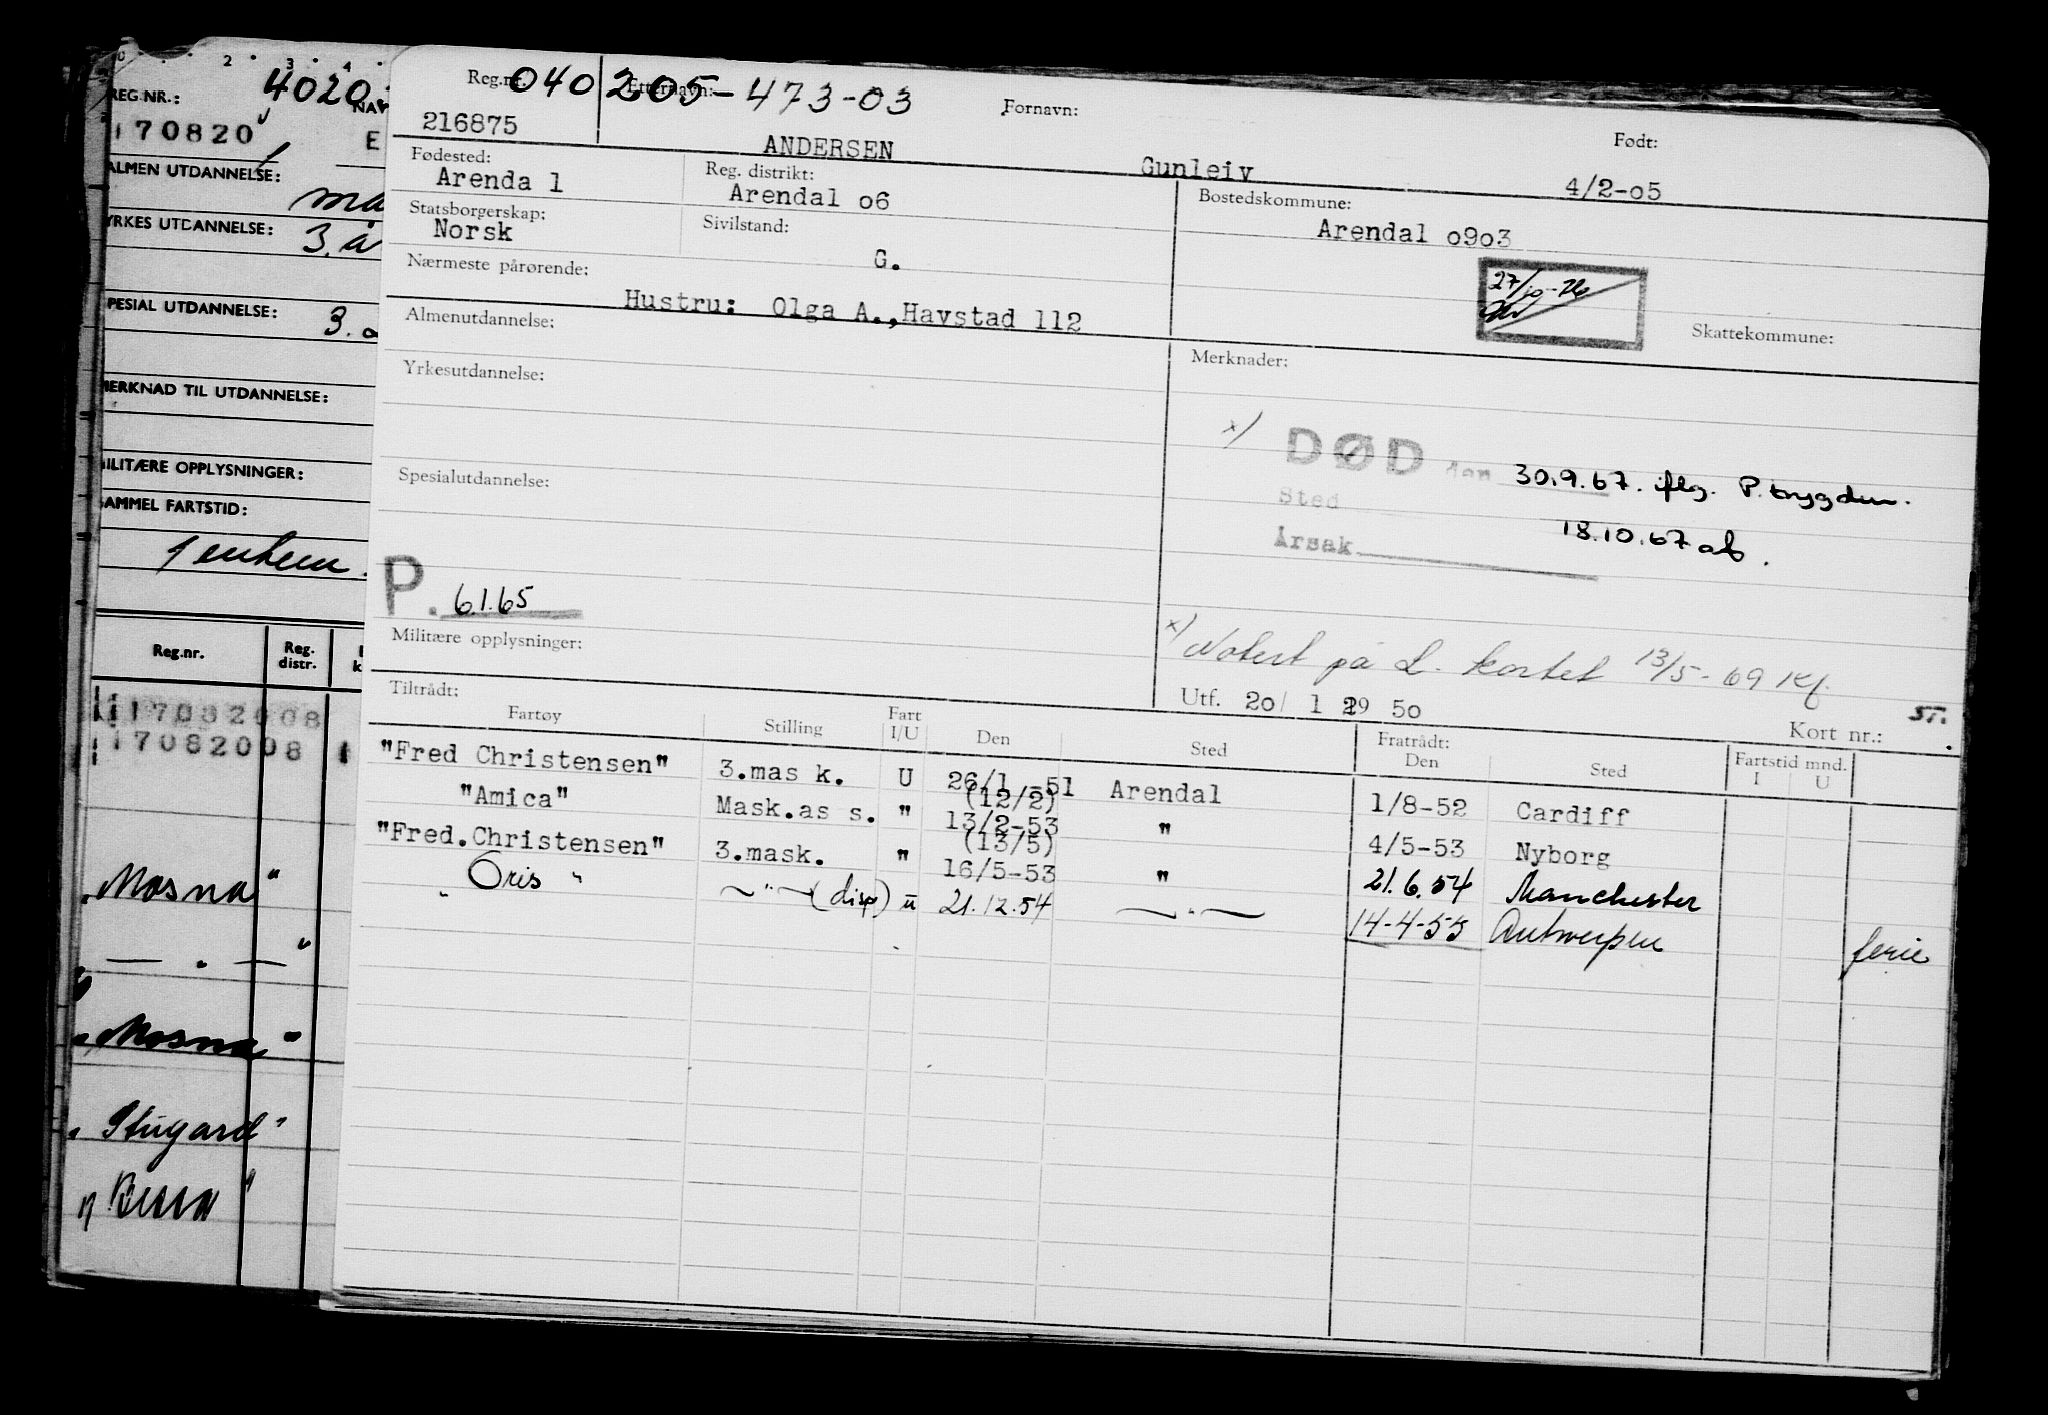 2 3 4
REG.NR.:
4020
NAV
170820
E
ALMEN UTDANNELSE:
YRKES UTDANNELSE:
3. å
SPESIAL UTDANNELSE:
3. a
MERKNAD TIL UTDANNELSE:
MILITÆRE OPPLYSNINGER:
SAMMEL FARTSTID:
Reg.nr.
Reg. distr.
17082008
17082008
"Mosna"
— " —
"Mosna"
"Stugard"
"Bessa"
Reg.nr. 040205-473-03
Etternavn:
Fornavn:
Født:
216875
ANDERSEN
Gunleiv
4/2-05
Fødested:
Arendal
Reg. distrikt:
Arendal 06
Bostedskommune:
Arendal 0903
Statsborgerskap:
Norsk
Sivilstand:
G.
Nærmeste pårørende:
Hustru: Olga A., Havstad 112
27/10-76
Skattekommune:
Almenutdannelse:
Merknader:
Yrkesutdannelse:
x) DØD den 30.9.67. iflg. P.trygden.
Sted
18.10.67 ab.
Årsak
Spesialutdannelse:
P. 6.1.65
Militære opplysninger:
x) Notert på L. kortet 13/5-69 Kf.
Utf. 20/12 1950
ST.
Kort nr.:
Tiltrådt:
Fratrådt:
Fartøy
Stilling
Fart I/U
Den
Sted
Den
Sted
Fartstid mnd.
I U
"Fred Christensen" 3.mas k. U 26/1 -51 Arendal 1/8-52 Cardiff
(12/2)
"Amica" Mask.as s. " 13/2-53 " 4/5-53 Nyborg
(13/5)
"Fred.Christensen" 3.mask. " 16/5-53 " 21.6.54 Manchester
" Oris " —"— (disp) U 21.12.54 —"— 14-4-55 Antwerpen ferie